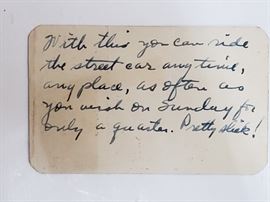 With this you can ride
the street car any time,
any place, as often as
you wish on Sunday for
only a quarter. Pretty slick!